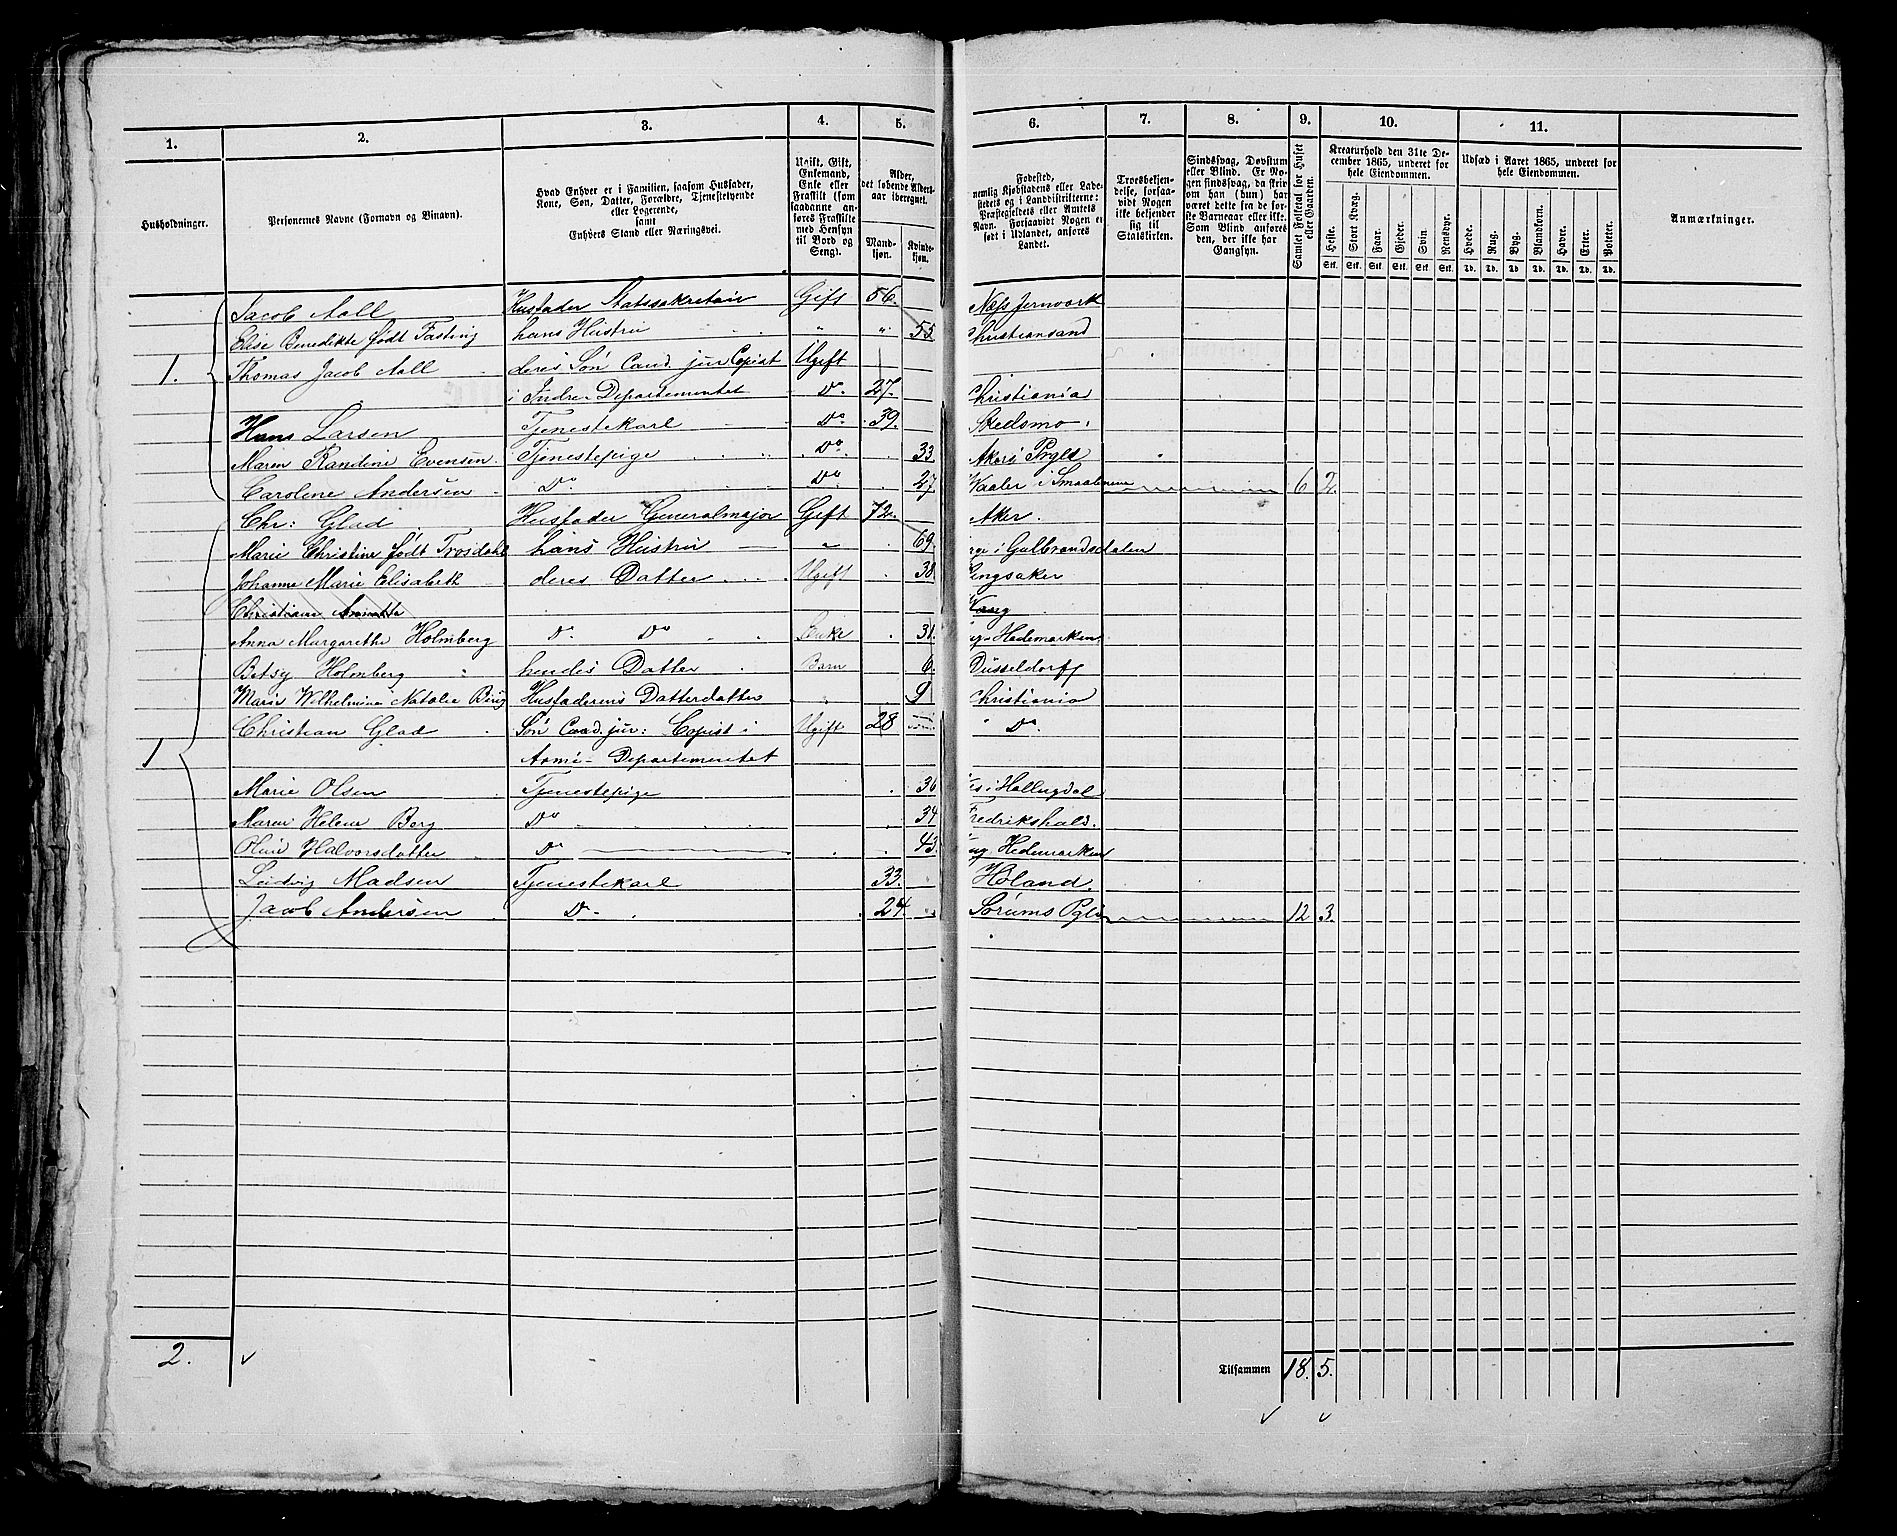 1. 2. 3. 4. 5. 6. 7. 8. 9. 10. 11.
Husholdninger.
Personernes Navne (Fornavn og Binavn).
Hvad Enhver er i Familien, saasom Husfader,
Kone, Søn, Datter, Forældre, Tjenestetyende
eller Logerende,
samt
Enhvers Stand eller Næringsvei.
Ugift, Gift,
Enkemand,
Enke eller
Fraskilt (som
saadanne an-
føres Fraskilte
med Hensyn
til Bord og
Seng).
Alder,
det løbende Alders-
aar iberegnet.
Mand-
kjøn.
Kvinde-
kjøn.
Fødested,
nemlig Kjøbstadens eller Lade-
stedets og i Landdistrikterne:
Præstegjeldets eller Amtets
Navn. Forsaavidt Nogen er
født i Udlandet, anføres
Landet.
Troesbekjen-
delse, forsaa-
vidt Nogen
ikke bekjender
sig til
Statskirken.
Sindssvag, Døvstum
eller Blind. Er No-
gen sindssvag, da skriv
om han (hun) har
været dette fra de før-
ste Barneaar eller ikke.
Som Blind anføres
den, der ikke har
Gangsyn.
Samlet Folketal for Huset
eller Gaarden.
Kreaturhold den 31te De-
cember 1865, underet for
hele Eiendommen.
Heste. Stort Kvæg. Faar. Gjeder. Svin. Rensdyr.
Stk. Stk. Stk. Stk. Stk. Stk.
Udsæd i Aaret 1865, underet for
hele Eiendommen.
Hvede. Rug. Byg. Blandkorn. Havre. Erter. Poteter.
Td. Td. Td. Td. Td. Td. Td.
Anmærkninger.
Jacob Aall Husfader Statssekretair Gift 56. Næss Jernværk
Elise Benedikte født Fasting hans Hustru " " 55 Christiansand
1. Thomas Jacob Aall deres Søn Cand. jur Copist Ugift
i Indre Departementet Do. 27. Christiania
Hans Larsen Tjenestekarl Do 39. Skedsmo.
Maren Randine Evensen Tjenestepige Do 33 Akers Prgld
Caroline Andersen Do. Do 27 Waaler i Smaalenene 6 2.
Chr: Glad Husfader Generalmajor Gift 72. Aker.
Marie Christine født Trosdahl hans Hustru " 69. i Gulbrandsdalen
Johanne Marie Elisabeth deres Datter Ugift 38 Ringsaker
Christiane Annette
Anna Margarethe Holmberg Do. Do Enke 31. Hedemarken
Betsy Holmberg hendes Datter Barn 6. Düsseldorff
Marie Wilhelmine Natalie Bing Husfaderens Datterdatter " 9 Christiania
1 Christian Glad Søn Cand. jur: Copist i Ugift 28 " Do.
Armé-Departementet
Marie Olsen Tjenestepige 36 i Hallingdal
Maren Helene Berg Do 34 Fredrikshald.
Oline Halvorsdatter Do 43. Hedemarken
Ludvig Madsen Tjenestekarl 33. " Høland.
Jacob Andersen Do. 24. " Sørums Pgld 12 3.
2.
Tilsammen 18. 5.